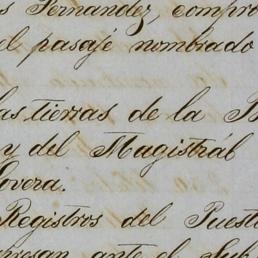 s Fernandez, compro
el pasaje nombrado
las tierras de la B
y del Magistrál
overa.
Registros del Puest
presan ante el Sub